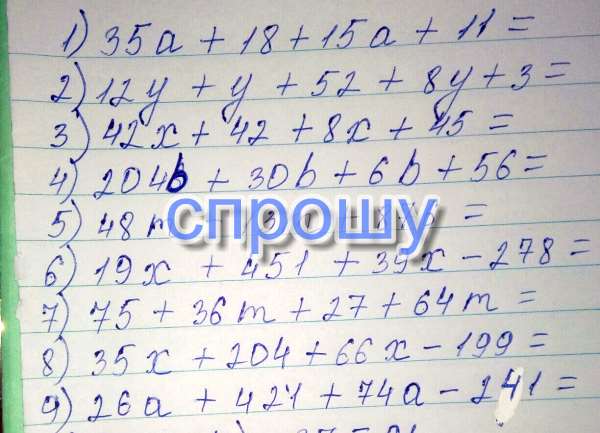 1) 35a + 18 + 15a + 11 =
2) 12y + y + 52 + 8y + 3 =
3) 42x + 42 + 8x + 45 =
4) 204b + 30b + 6b + 56 =
5) 48m =
спрошу
6) 19x + 451 + 39x - 278 =
7) 75 + 36m + 27 + 64m =
8) 35x + 204 + 66x - 199 =
9) 26a + 421 + 74a - 241 =